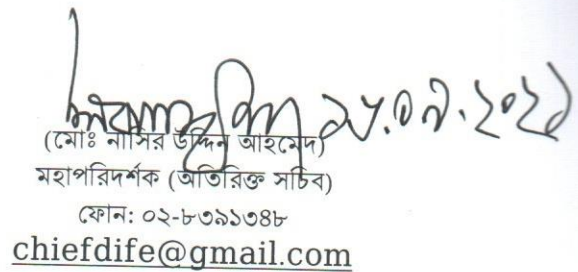 ২৮.০৯.২০২১
(মোঃ নাসির উদ্দিন আহমেদ)
মহাপরিদর্শক (অতিরিক্ত সচিব)
ফোন: ০২-৮৩৯১৩৪৮
chiefdife@gmail.com